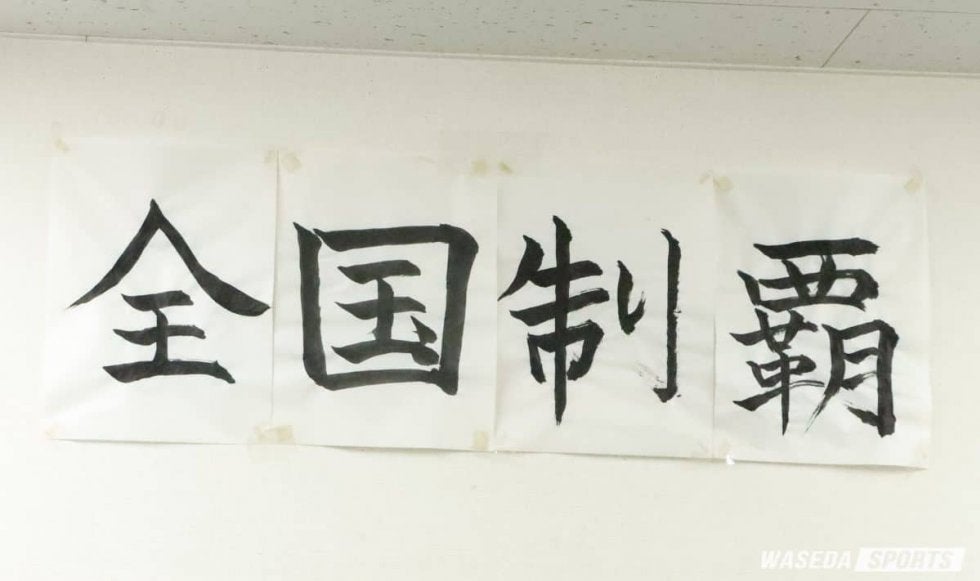 全国制覇
WASEDA SPORTS